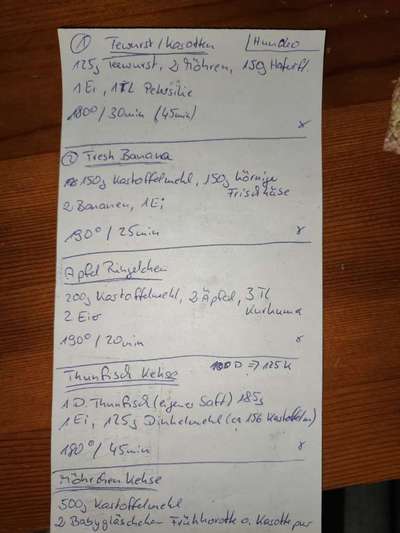 ① Teewurst/Karotten
125g Teewurst, 2 Möhren, 150g Haferfl
1 Ei, 1TL Petersilie
180°/30min (45min)
x
② Fresh Banana
150g Kartoffelmehl, 150g körnige
Frischkäse
2 Bananen, 1Ei
190°/25min
Apfel Ringelchen
200g Kartoffelmehl, 2 Äpfel, 3 TL
Kurkuma
2 Eier
190°/20min
Thunfisch Kekse
100D => 125K
1 D. Thunfisch (eigener Saft) 185g
1 Ei, 125g Dinkelmehl (ca 156 Kartoffelm)
180°/45min
x
Möhrchen Kekse
500g Kartoffelmehl
2 Babygläschchen Frühkarotte o. Karotte pur